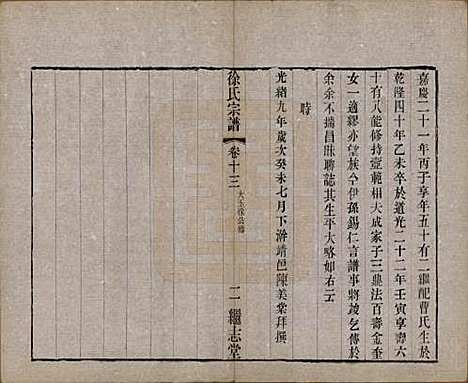 嘉慶二十一年丙子享年五十有二繼配曹氏生於
乾隆四十年乙未卒於道光二十二年壬寅享壽六
十有八能修持壼範相夫成家子三鼎法百壽金垂
女一適繆亦望族今伊孫錫仁言譜事將竣乞傳於
余余不揣昌昧聊誌其生平大略如右云
時
光緒九年歲次癸未七月下澣靖邑陳美棠拜撰
徐氏宗譜
卷十三
二
繼志堂